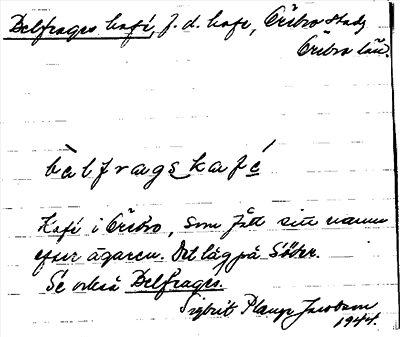 Belfrages kafé, f.d. kafe, Örebro stad,
Örebro län.
bàlfragskafé
Kafé i Örebro, som fått sitt namn
efter ägaren. Det låg på Söder.
Se också Belfrages.
Sigbrit Plænge Jacobson
1944.